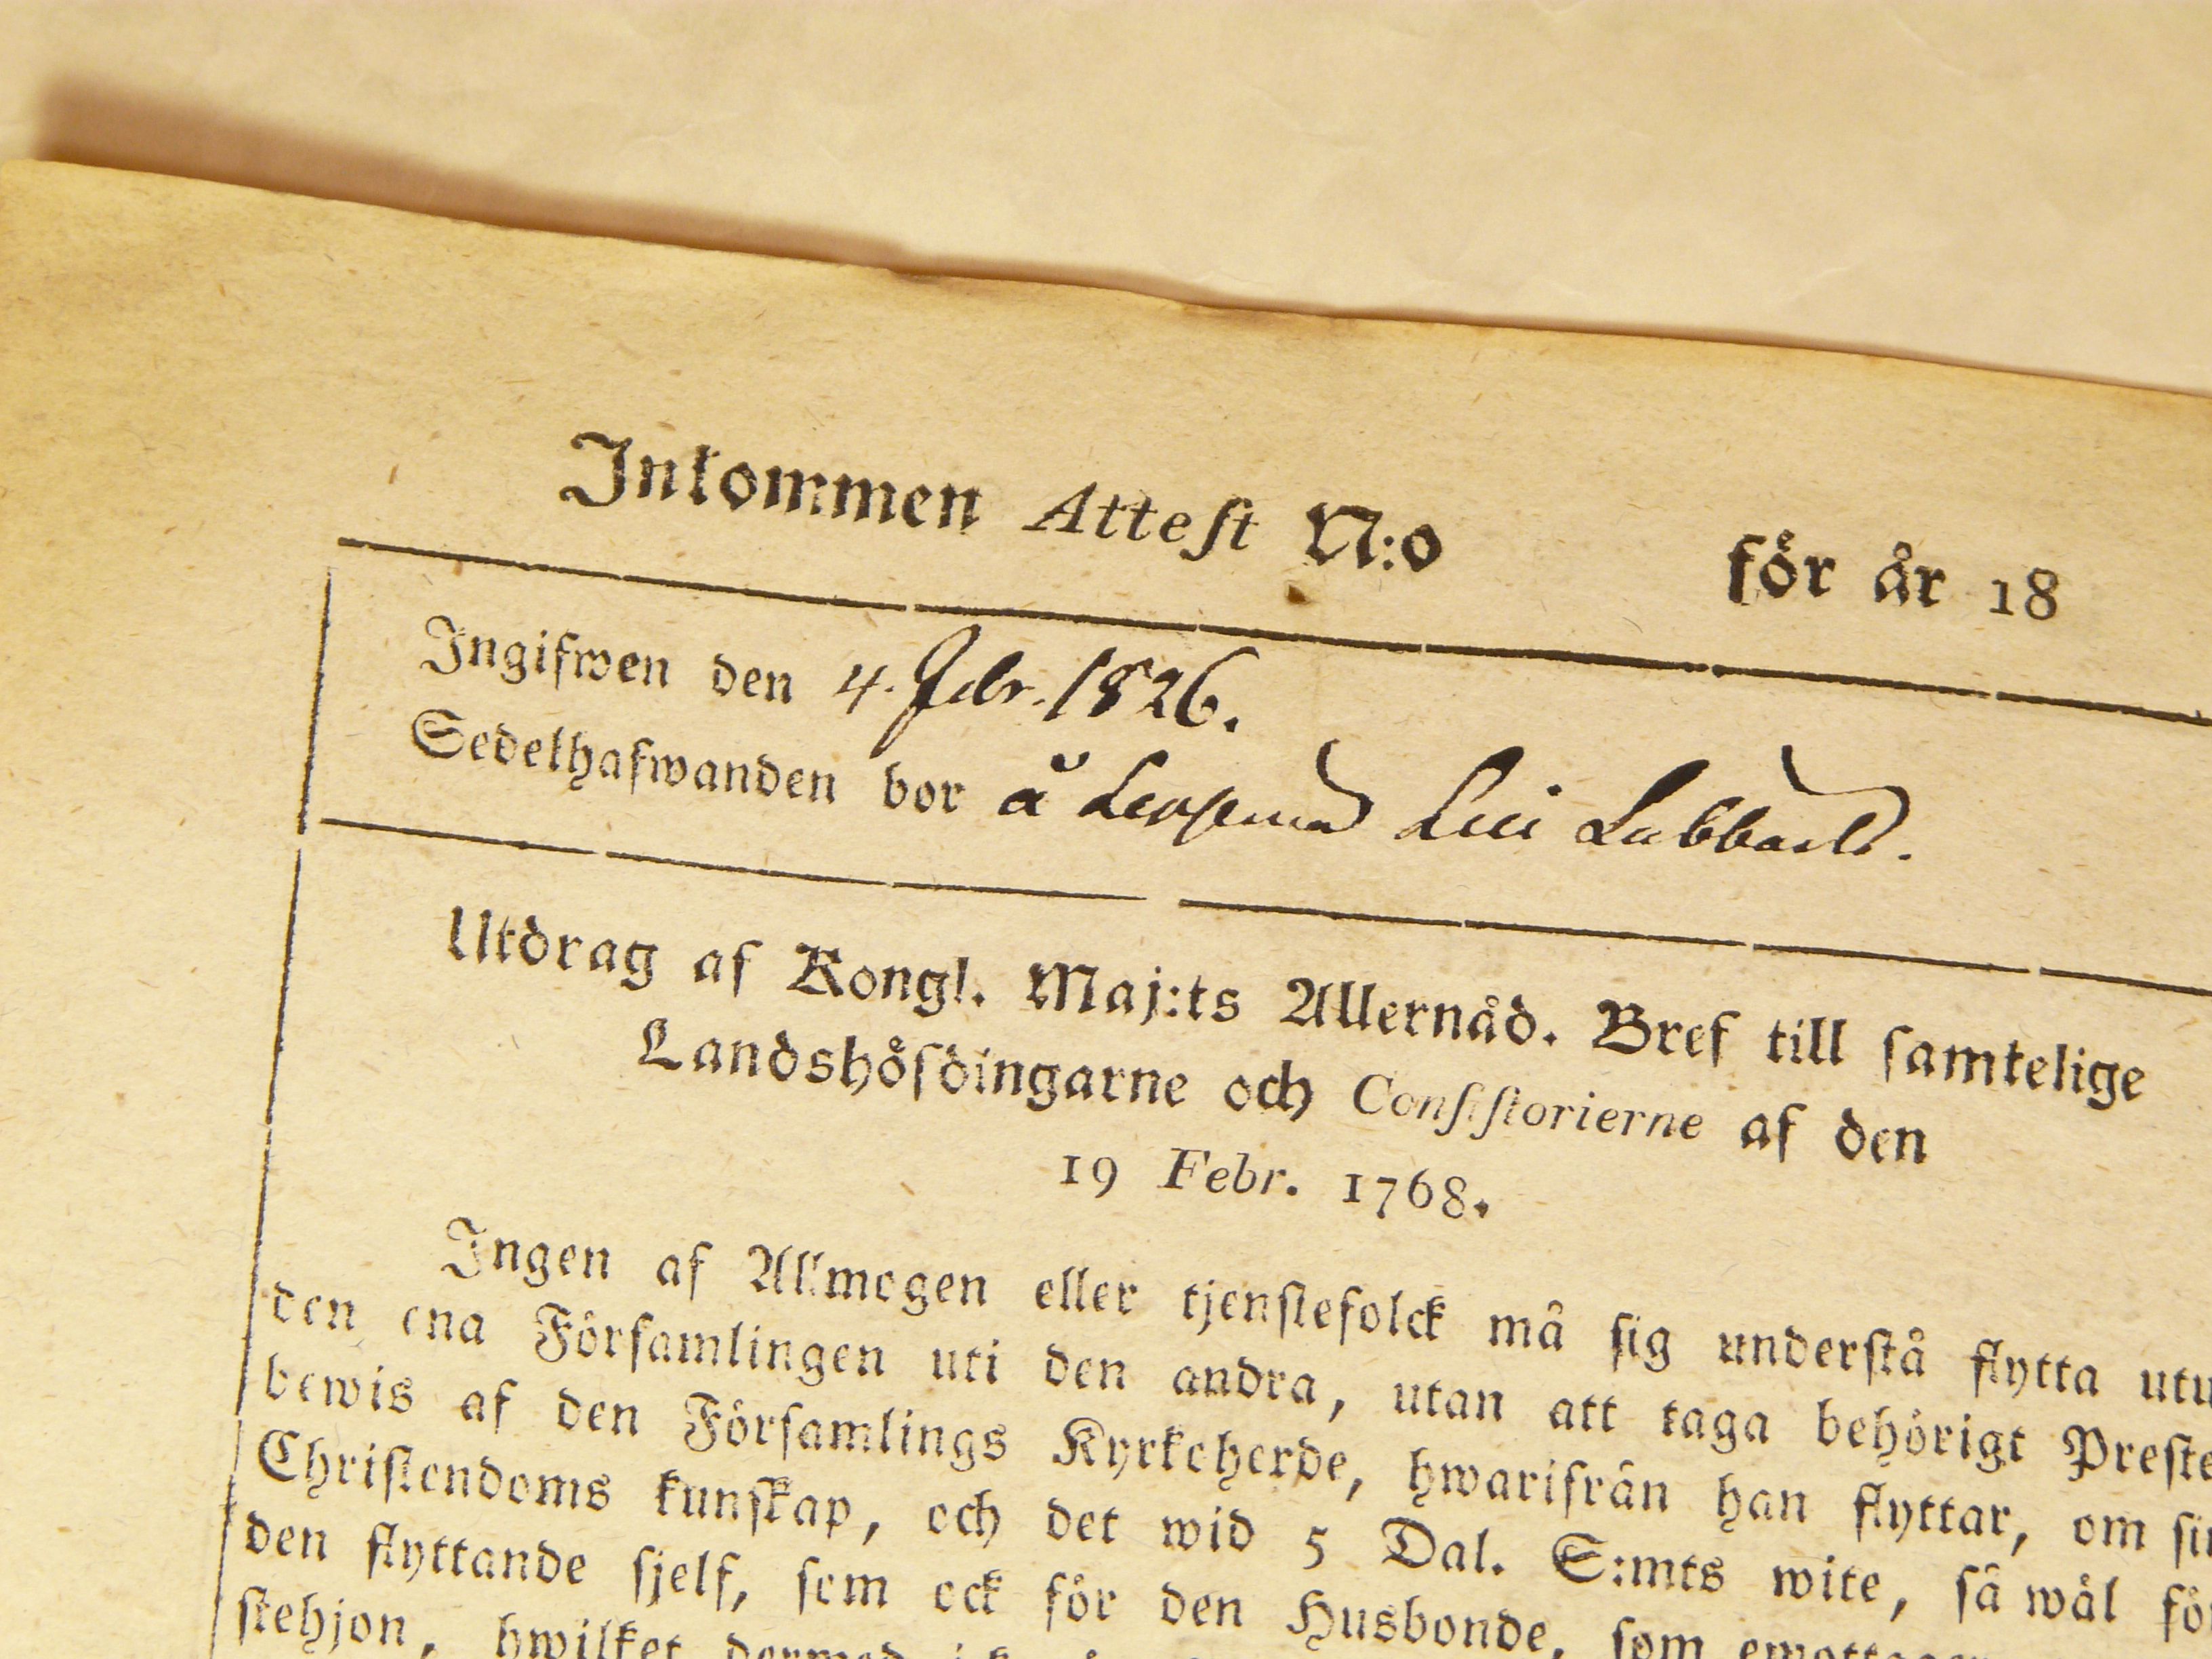 Inkommen Attest N:o för år 18
Ingifwen den 4. Febr. 1826.
Sedelhafwanden bor å
Utdrag af Kongl. Maj:ts Allernåd. Bref till samtelige
Landshöfdingarne och Consistorierne af den
19 Febr. 1768.
Ingen af Allmogen eller tjenstefolck må sig understå flytta utu
den ena Församlingen uti den andra, utan att taga behörigt Preste
bewis af den Församlings Kyrkeherde, hwarifrån han flyttar, om
Christendoms kunskap, och det wid 5 Dal. S:mts wite, så wäl
den flyttande sjelf, som ock för den Husbonde, som
stehjon, hwilket